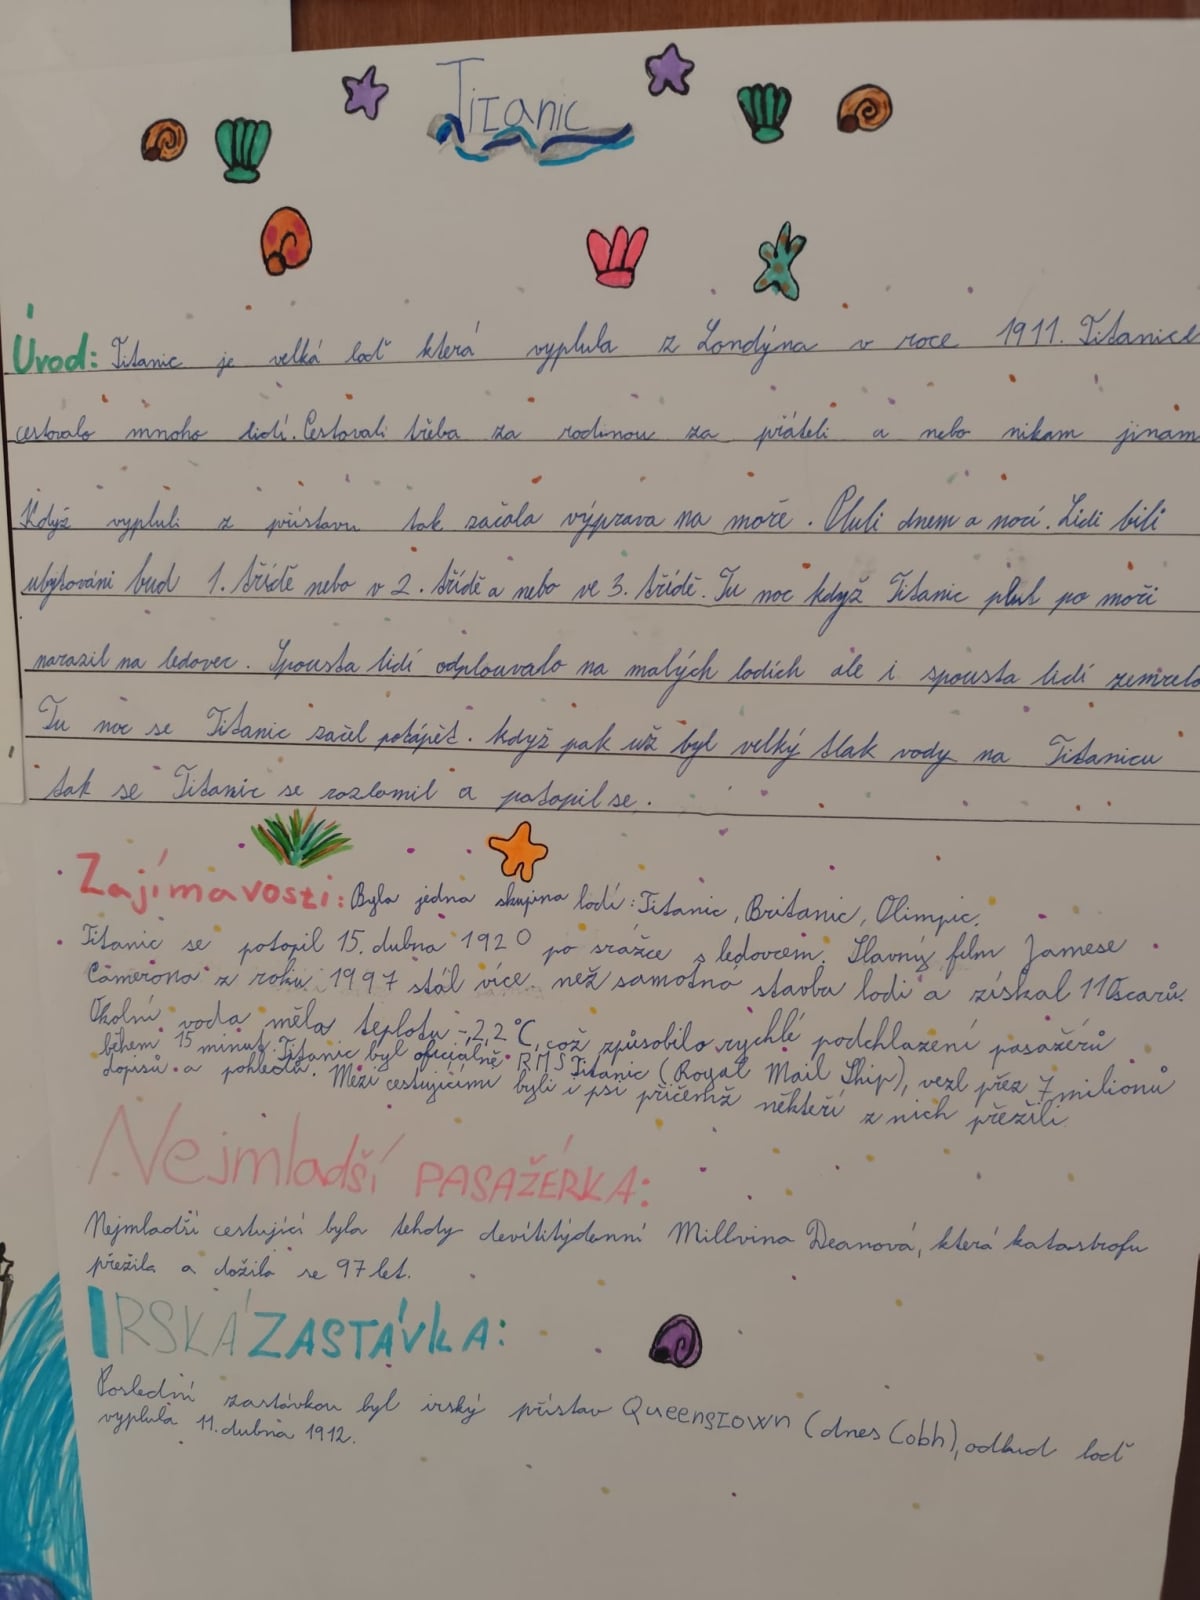 Titanic
Úvod: Titanic je velká loď která vyplula z Londýna v roce 1911. Titanice
cestovalo mnoho lidí. Cestovali třeba za rodinou za přáteli a nebo nikam jinam
Když vypluli z přístavu tak začala výprava na moře. Pluli dnem a nocí. Lidi bili
ubytováni bud 1. třídě nebo v 2. třídě a nebo ve 3. třídě. Tu noc když Titanic plul po moři
narazil na ledovec. Spousta lidí odplouvalo na malých lodích ale i spousta lidí zemřelo
Tu noc se Titanic začel potápět. když pak už byl velký tlak vody na Titanicu
tak se Titanic se rozlomil a potopil se.
Zajímavosti: Byla jedna skupina lodí: Titanic, Britanic, Olimpic.
Titanic se potopil 15. dubna 1920 po srážce s ledovcem. Slavný film Jamese
Camerona z roku 1997 stál více než samotná stavba lodi a získal 11 Oscarů.
Okolní voda měla teplotu -2,2°C, což způsobilo rychlé podchlazení pasažérů
během 15 minut. Titanic byl oficiálně RMS Titanic (Royal Mail Ship), vezl přez 7 milionů
dopisů a pohledů. Mezi cestujícími byli i psi přičemž někteří z nich přežili.
Nejmladší PASAŽÉRKA:
Nejmladší cestující byla tehdy devítitýdenní Millvina Deanová, která katastrofu
přežila a dožila se 97 let.
IRSKÁ ZASTÁVKA:
Poslední zastávkou byl irský přístav Queenstown (dnes Cobh), odkud loď
vyplula 11. dubna 1912.